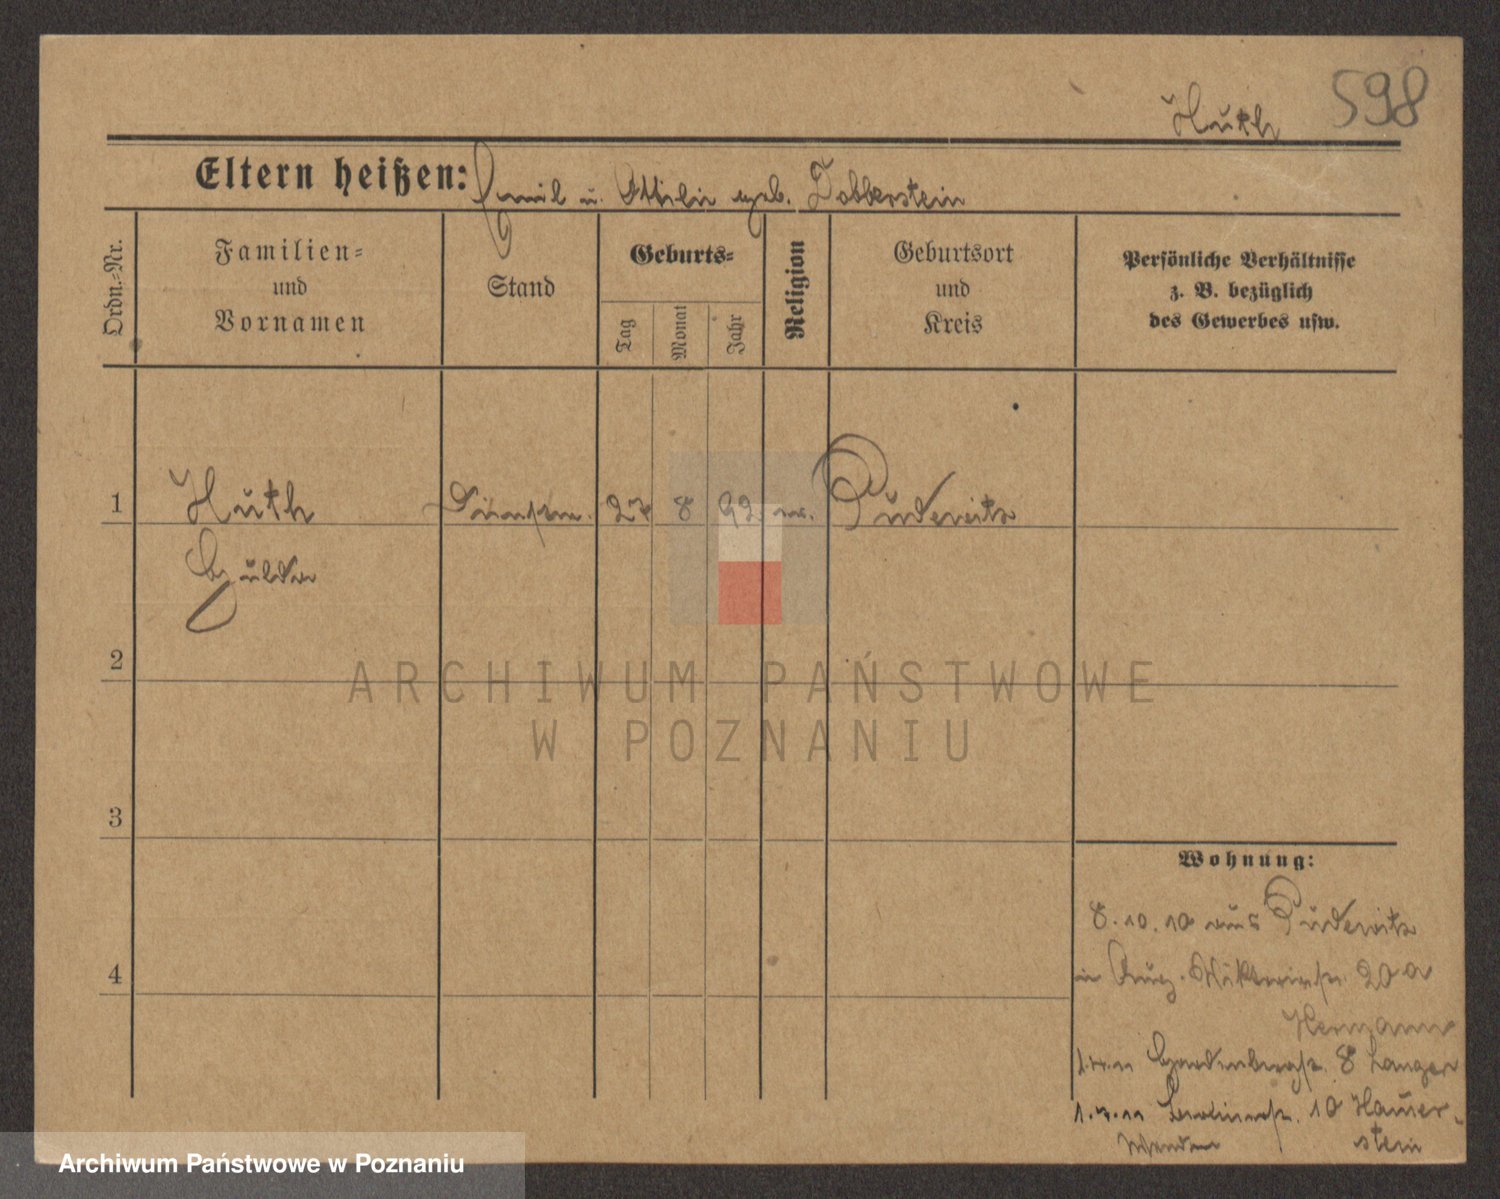 Huth 598
Eltern heißen: Emil u. Ottilie geb. Dobberstein
Ordn.=Nr.
Familien=
und
Vornamen
Stand
Geburts=
Tag
Monat
Jahr
Religion
Geburtsort
und
Kreis
Persönliche Verhältnisse
z. B. bezüglich
des Gewerbes usw.
1 Huth 27 8 92 ev. Pudewitz
Hulda
2
3
4
Wohnung:
8.10.10 aus Pudewitz
in Aug. Viktoriastr. 20a
Hermann
Hardenbergstr. 8 Langer
10 Hauer-
stein
ARCHIWUM PAŃSTWOWE
W POZNANIU
Archiwum Państwowe w Poznaniu